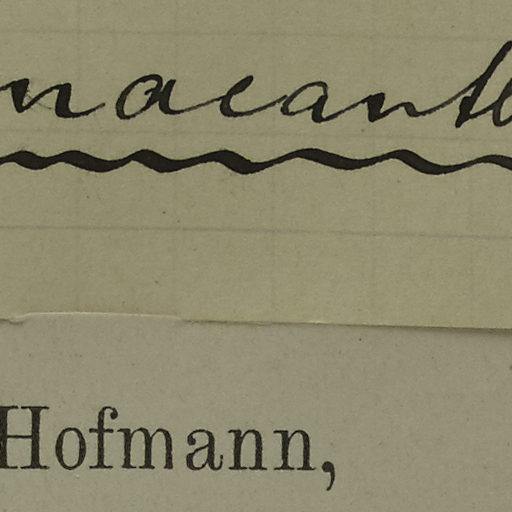 macanth
Hofmann,